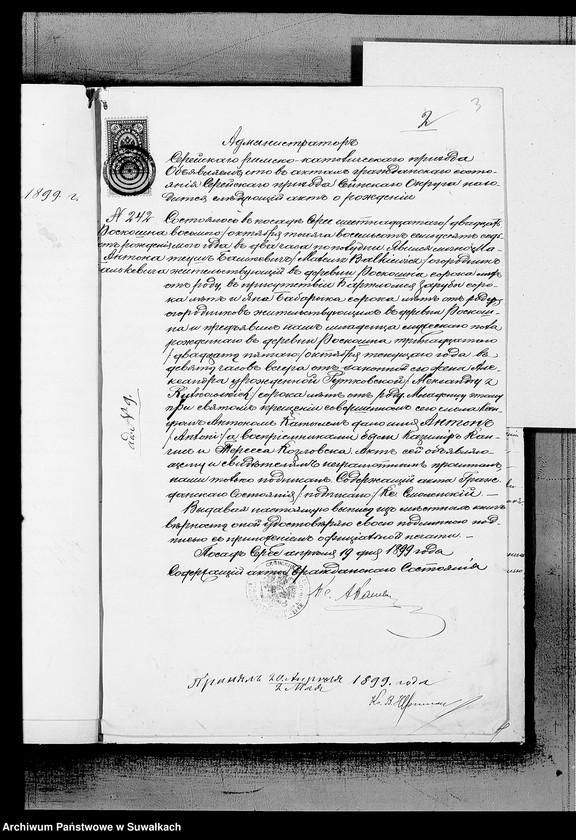 3
2
1899 г.
Администраторъ
Серейскаго римско-католическаго прихода
Объявляетъ что въ актахъ гражданскаго состо-
янія Серейскаго прихода Сейнскаго Округа нахо-
дится слѣдующій актъ о рожденіи
№ 242
Роскошна
Антона
Состоялось въ посадѣ Сереѣ шестнадцатаго /двадцать
восьмого/ октября тысяча восемьсотъ семьдесятъ
рожденнаго года въ два часа по полудни Явился лично Ма-
/Maciej Balkiewicz/ огородникъ
жительствующій въ деревни Роскошна сорока лѣтъ
отъ роду, въ присутствіи Бартломея Зарубы соро-
ка лѣтъ и Яна сорока лѣтъ отъ роду,
огородниковъ жительствующихъ въ деревни Роскош-
на и предъявилъ намъ младенца мужескаго пола
рожденнаго въ деревни Роскошна тринадцатаго
/двадцать пятаго/ октября текущаго года въ
девять часовъ вечера отъ законной его жены Але-
ксандры урожденной Рутковской /Alexandry z
Rutkowskich/ сорока лѣтъ отъ роду. Младенцу этому
при святомъ крещеніи совершенномъ сего числа Ксен-
дзомъ Антономъ дано имя Антонъ
/Antoni/ а воспріемниками были Казимиръ
и Тересса Козловска Актъ сей объявляю-
щему и свидѣтелямъ неграмотнымъ прочитанъ
нами только подписанъ. Содержащій акты Граж-
данскаго Состоянія /подписано/ Кс. Смоленскій —
Выдавая настоящую выпись изъ мѣстныхъ книгъ
вѣрность оной удостовѣряю своею подписью под-
писью съ приложеніемъ оффиціальной печати. —
Посадъ Сереѣ апрѣля 19 дня 1899 года
Содержащій акты Гражданскаго Состоянія
Кс.
№ 9.
Принялъ 20 Апрѣля / 2 Мая 1899. года
Кс.
Archiwum Państwowe w Suwałkach